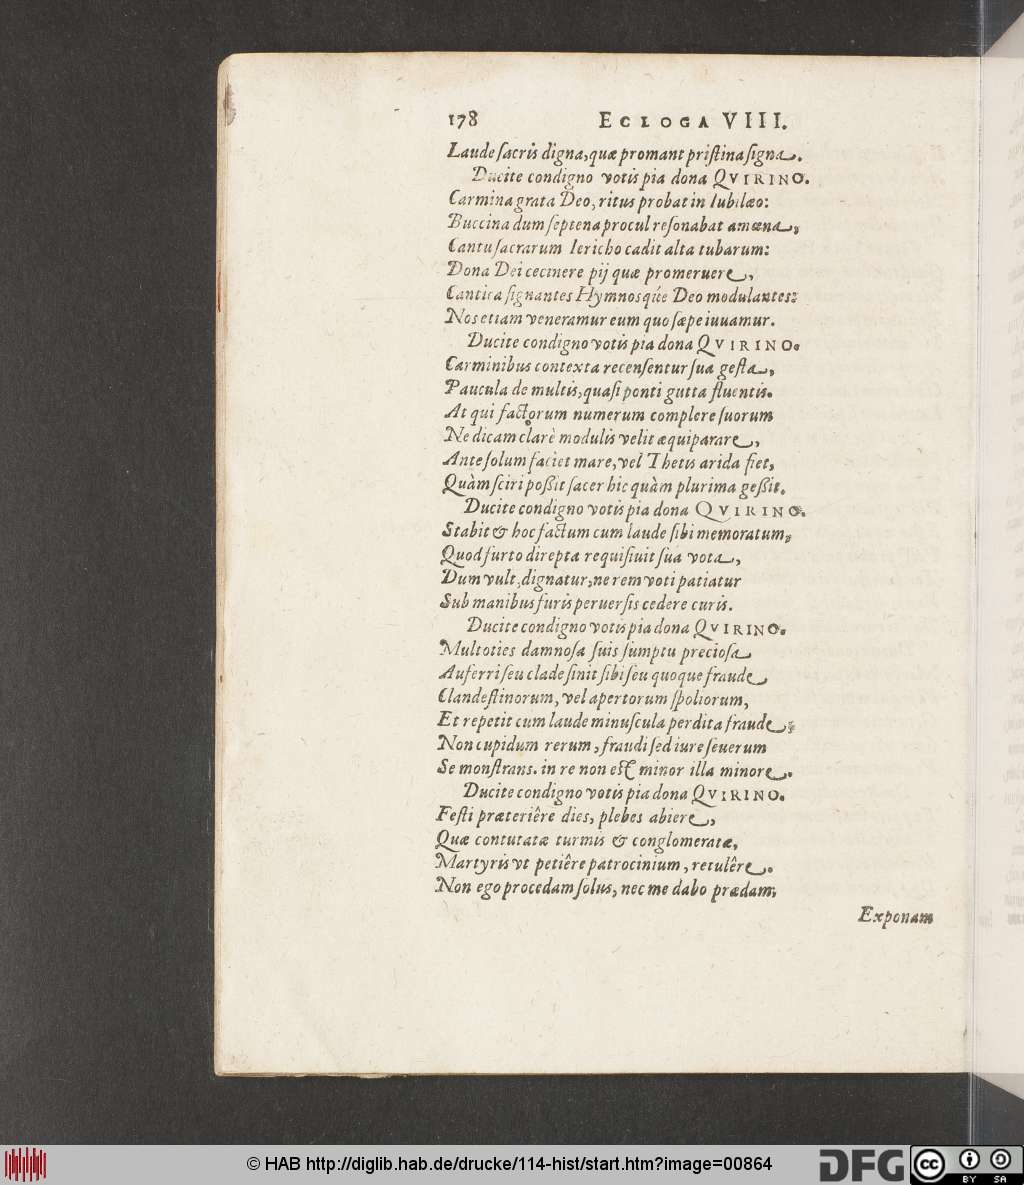 178 ECLOGA VIII.
Laude sacris digna, quæ promant pristina signa.
Ducite condigno votis pia dona QVIRINO.
Carmina grata Deo, ritus probat in Iubilæo:
Buccina dum septena procul resonabat amœna,
Cantu sacrarum Iericho cadit alta tubarum:
Dona Dei cecinere pij quæ promeruere,
Cantica signantes Hymnosq́ue Deo modulantes:
Nos etiam veneramur eum quo sæpe iuuamur.
Ducite condigno votis pia dona QVIRINO.
Carminibus contexta recensentur sua gesta,
Paucula de multis, quasi ponti gutta fluentis.
At qui factorum numerum complere suorum
Ne dicam clarè modulis velit æquiparare,
Ante solum faciet mare, vel Thetis arida fiet,
Quàm sciri poßit sacer hic quàm plurima geßit.
Ducite condigno votis pia dona QVIRINO.
Stabit & hoc factum cum laude sibi memoratum,
Quod furto direpta requisiuit sua vota,
Dum vult, dignatur, ne rem voti patiatur
Sub manibus furis peruersis cedere curis.
Ducite condigno votis pia dona QVIRINO.
Multoties damnosa suis sumptu preciosa
Auferri seu clade sinit sibi seu quoque fraude
Clandestinorum, vel apertorum spoliorum,
Et repetit cum laude minuscula perdita fraude;
Non cupidum rerum, fraudi sed iure seuerum
Se monstrans. in re non est minor illa minore.
Ducite condigno votis pia dona QVIRINO.
Festi præteriêre dies, plebes abiere,
Quæ contutatæ turmis & conglomeratæ,
Martyris vt petiêre patrocinium, retulêre.
Non ego procedam solus, nec me dabo prædam,
Exponam
© HAB http://diglib.hab.de/drucke/114-hist/start.htm?image=00864
DFG
cc BY SA